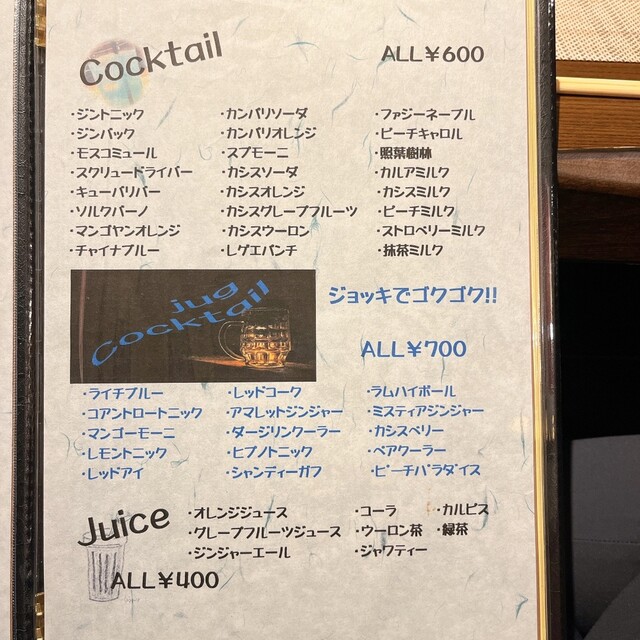 Cocktail
ALL¥600
・ジントニック
・ジンバック
・モスコミュール
・スクリュードライバー
・キューバリバー
・ソルクバーノ
・マンゴヤンオレンジ
・チャイナブルー
・カンパリソーダ
・カンパリオレンジ
・スプモーニ
・カシスソーダ
・カシスオレンジ
・カシスグレープフルーツ
・カシスウーロン
・レゲエパンチ
・ファジーネーブル
・ピーチキャロル
・照葉樹林
・カルアミルク
・カシスミルク
・ピーチミルク
・ストロベリーミルク
・抹茶ミルク
jug
Cocktail
ジョッキでゴクゴク!!
ALL¥700
・ライチブルー
・コアントロートニック
・マンゴーモーニ
・レモントニック
・レッドアイ
・レッドコーク
・アマレットジンジャー
・ダージリンクーラー
・ヒプノトニック
・シャンディーガフ
・ラムハイボール
・ミスティアジンジャー
・カシスペリー
・ペアクーラー
・ピーチパラダイス
Juice
ALL¥400
・オレンジジュース
・グレープフルーツジュース
・ジンジャーエール
・コーラ
・ウーロン茶
・ジャワティー
・カルピス
・緑茶